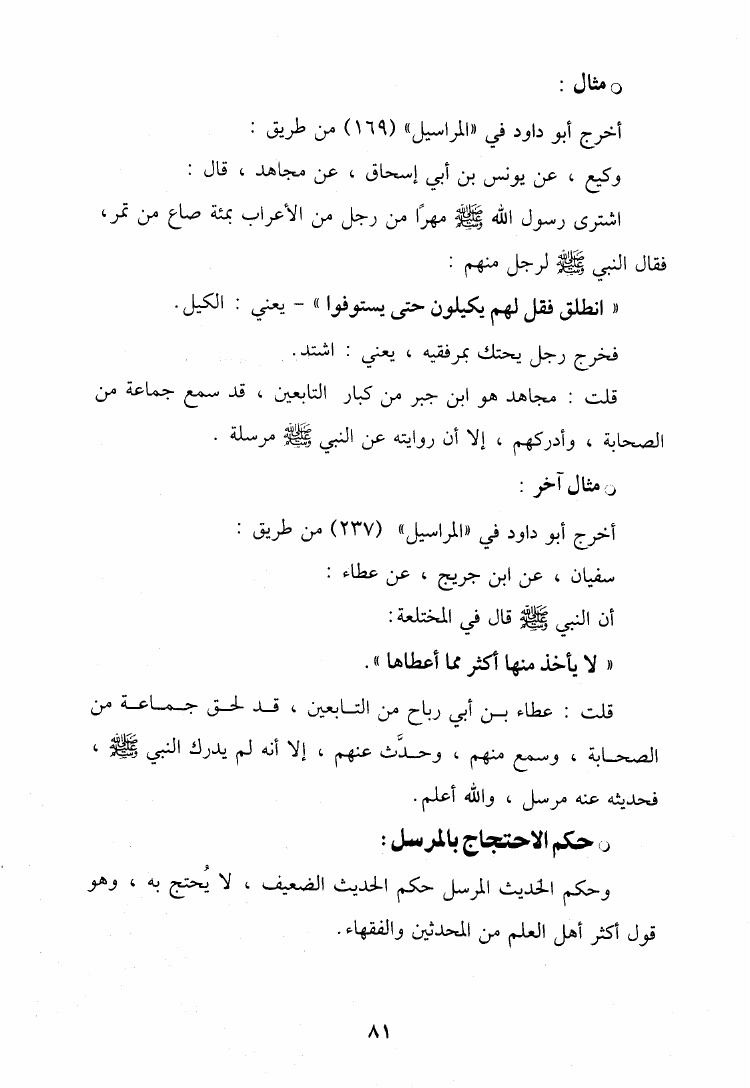 ○ مثال :
أخرج أبو داود في «المراسيل» (١٦٩) من طريق :
وكيع ، عن يونس بن أبي إسحاق ، عن مجاهد ، قال :
اشترى رسول الله ﷺ مهرًا من رجل من الأعراب بمئة صاع من تمر،
فقال النبي ﷺ لرجل منهم :
« انطلق فقل لهم يكيلون حتى يستوفوا » – يعني : الكيل.
فخرج رجل يحتك بمرفقيه ، يعني : اشتد.
قلت : مجاهد هو ابن جبر من كبار التابعين ، قد سمع جماعة من
الصحابة ، وأدركهم ، إلا أن روايته عن النبي ﷺ مرسلة .
○ مثال آخر :
أخرج أبو داود في «المراسيل» (٢٣٧) من طريق :
سفيان ، عن ابن جريج ، عن عطاء :
أن النبي ﷺ قال في المختلعة:
« لا يأخذ منها أكثر مما أعطاها ».
قلت : عطاء بـن أبي رباح من التـابعين ، قـد لحـق جـمـاعـة من
الصحـابة ، وسمع منهم ، وحـدَّث عنهم ، إلا أنه لم يدرك النبي ﷺ ،
فحديثه عنه مرسل ، والله أعلم.
○ حكم الاحتجاج بالمرسل:
وحكم الحديث المرسل حكم الحديث الضعيف ، لا يُحتج به ، وهو
قول أكثر أهل العلم من المحدثين والفقهاء.
٨١